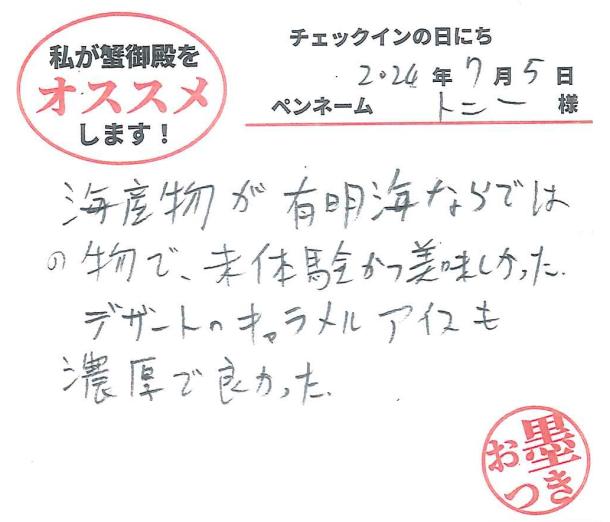 私が蟹御殿を
オススメ
します！
チェックインの日にち
2024年7月5日
ペンネーム トニー 様
海産物が有明海ならでは
の物で、未体験かつ美味しかった.
デザートのキャラメルアイスも
濃厚で良かった.
お墨
つき